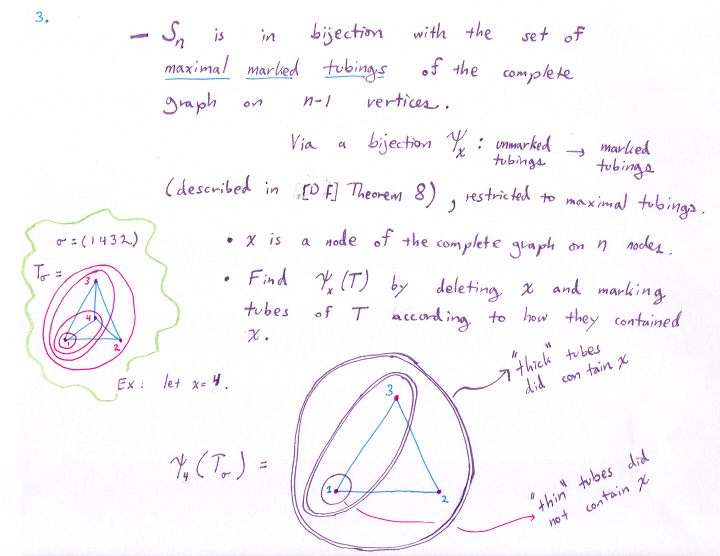 3.
— Sn is in bijection with the set of
maximal marked tubings of the complete
graph on n-1 vertices.
Via a bijection Ψx : unmarked tubings → marked tubings
(described in [DF] Theorem 8), restricted to maximal tubings.
• x is a node of the complete graph on n nodes.
• Find Ψx(T) by deleting x and marking
tubes of T according to how they contained
x.
σ = (1432)
Tσ =
3
4
1
2
Ex: let x=4.
"thick" tubes
did contain x
Ψ4(Tσ) =
3
1
2
"thin" tubes did
not contain x